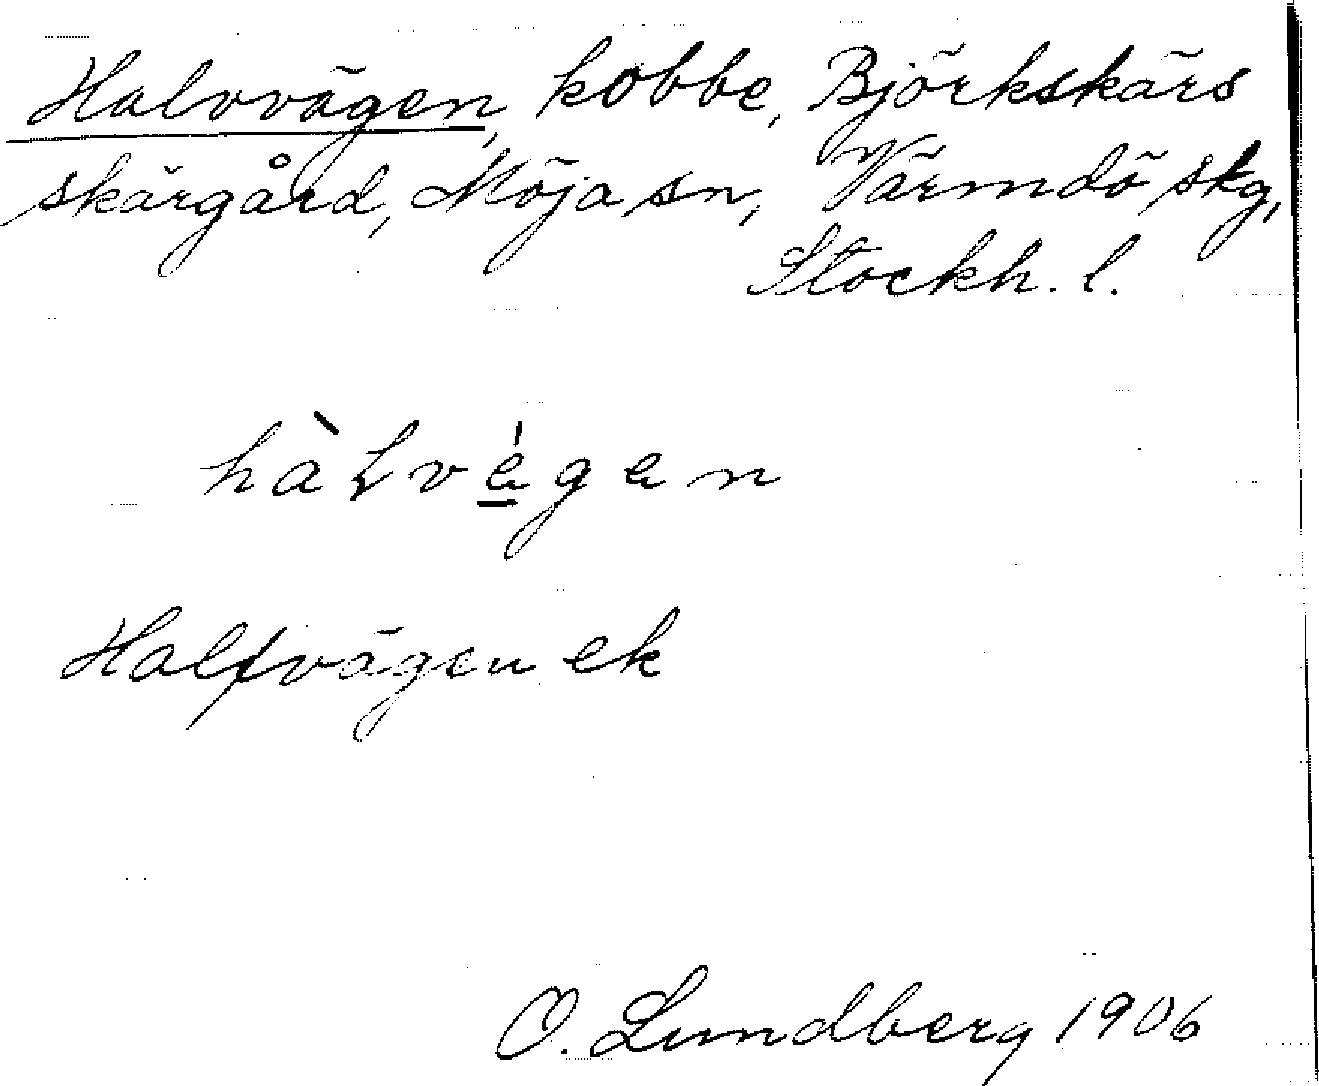 Halvvägen, kobbe, Björkskärs
skärgård, Möja sn, Värmdö skg,
Stockh. l.
hàlvé̱gen
Halfvägen ek
O. Lundberg 1906